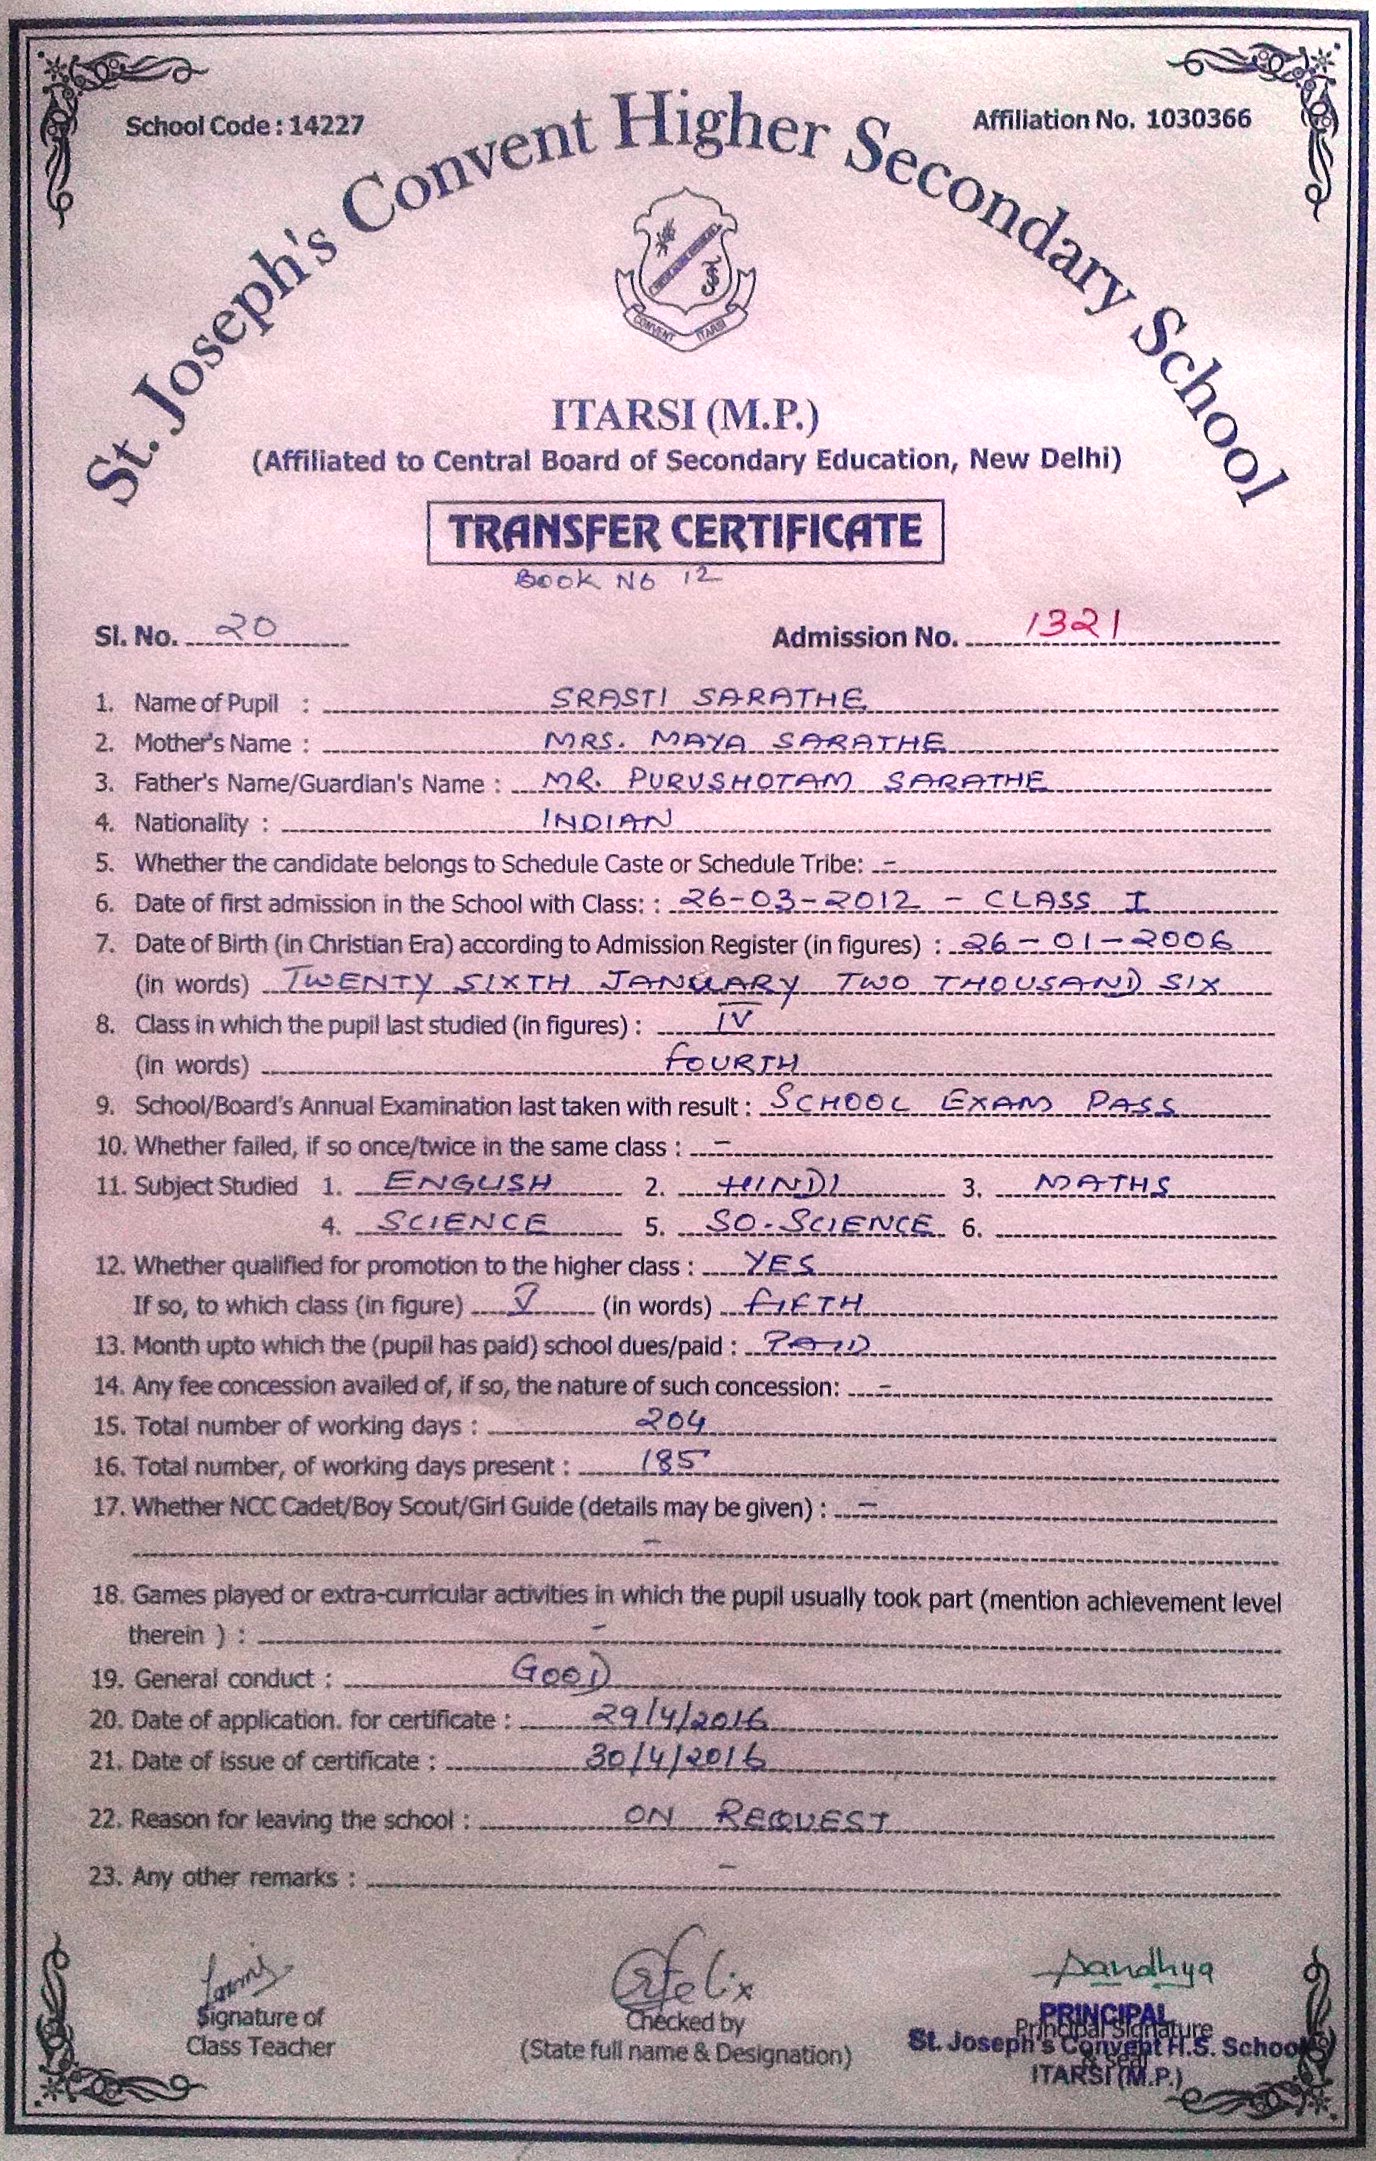 School Code : 14227
Affiliation No. 1030366
St. Joseph's Convent Higher Secondary School
CONVENT ITARSI
ITARSI (M.P.)
(Affiliated to Central Board of Secondary Education, New Delhi)
TRANSFER CERTIFICATE
BOOK NO 12
Sl. No. 20 Admission No. 1321
1. Name of Pupil : SRASTI SARATHE
2. Mother's Name : MRS. MAYA SARATHE
3. Father's Name/Guardian's Name : MR. PURUSHOTAM SARATHE
4. Nationality : INDIAN
5. Whether the candidate belongs to Schedule Caste or Schedule Tribe: -
6. Date of first admission in the School with Class: : 26-03-2012 - CLASS I
7. Date of Birth (in Christian Era) according to Admission Register (in figures) : 26-01-2006
(in words) TWENTY SIXTH JANUARY TWO THOUSAND SIX
8. Class in which the pupil last studied (in figures) : IV
(in words) FOURTH
9. School/Board's Annual Examination last taken with result : SCHOOL EXAM PASS
10. Whether failed, if so once/twice in the same class : -
11. Subject Studied 1. ENGLISH 2. HINDI 3. MATHS
4. SCIENCE 5. SO-SCIENCE 6.
12. Whether qualified for promotion to the higher class : YES
If so, to which class (in figure) V (in words) FIFTH
13. Month upto which the (pupil has paid) school dues/paid : PAID
14. Any fee concession availed of, if so, the nature of such concession: -
15. Total number of working days : 204
16. Total number, of working days present : 185
17. Whether NCC Cadet/Boy Scout/Girl Guide (details may be given) : -
-
18. Games played or extra-curricular activities in which the pupil usually took part (mention achievement level
therein ) : -
19. General conduct : GOOD
20. Date of application. for certificate : 29/4/2016
21. Date of issue of certificate : 30/4/2016
22. Reason for leaving the school : ON REQUEST
23. Any other remarks : -
Felix
Sandhya
Signature of
Class Teacher
Checked by
(State full name & Designation)
PRINCIPAL
Principal Signature
St. Joseph's Convent H.S. School
& Seal
ITARSI (M.P.)